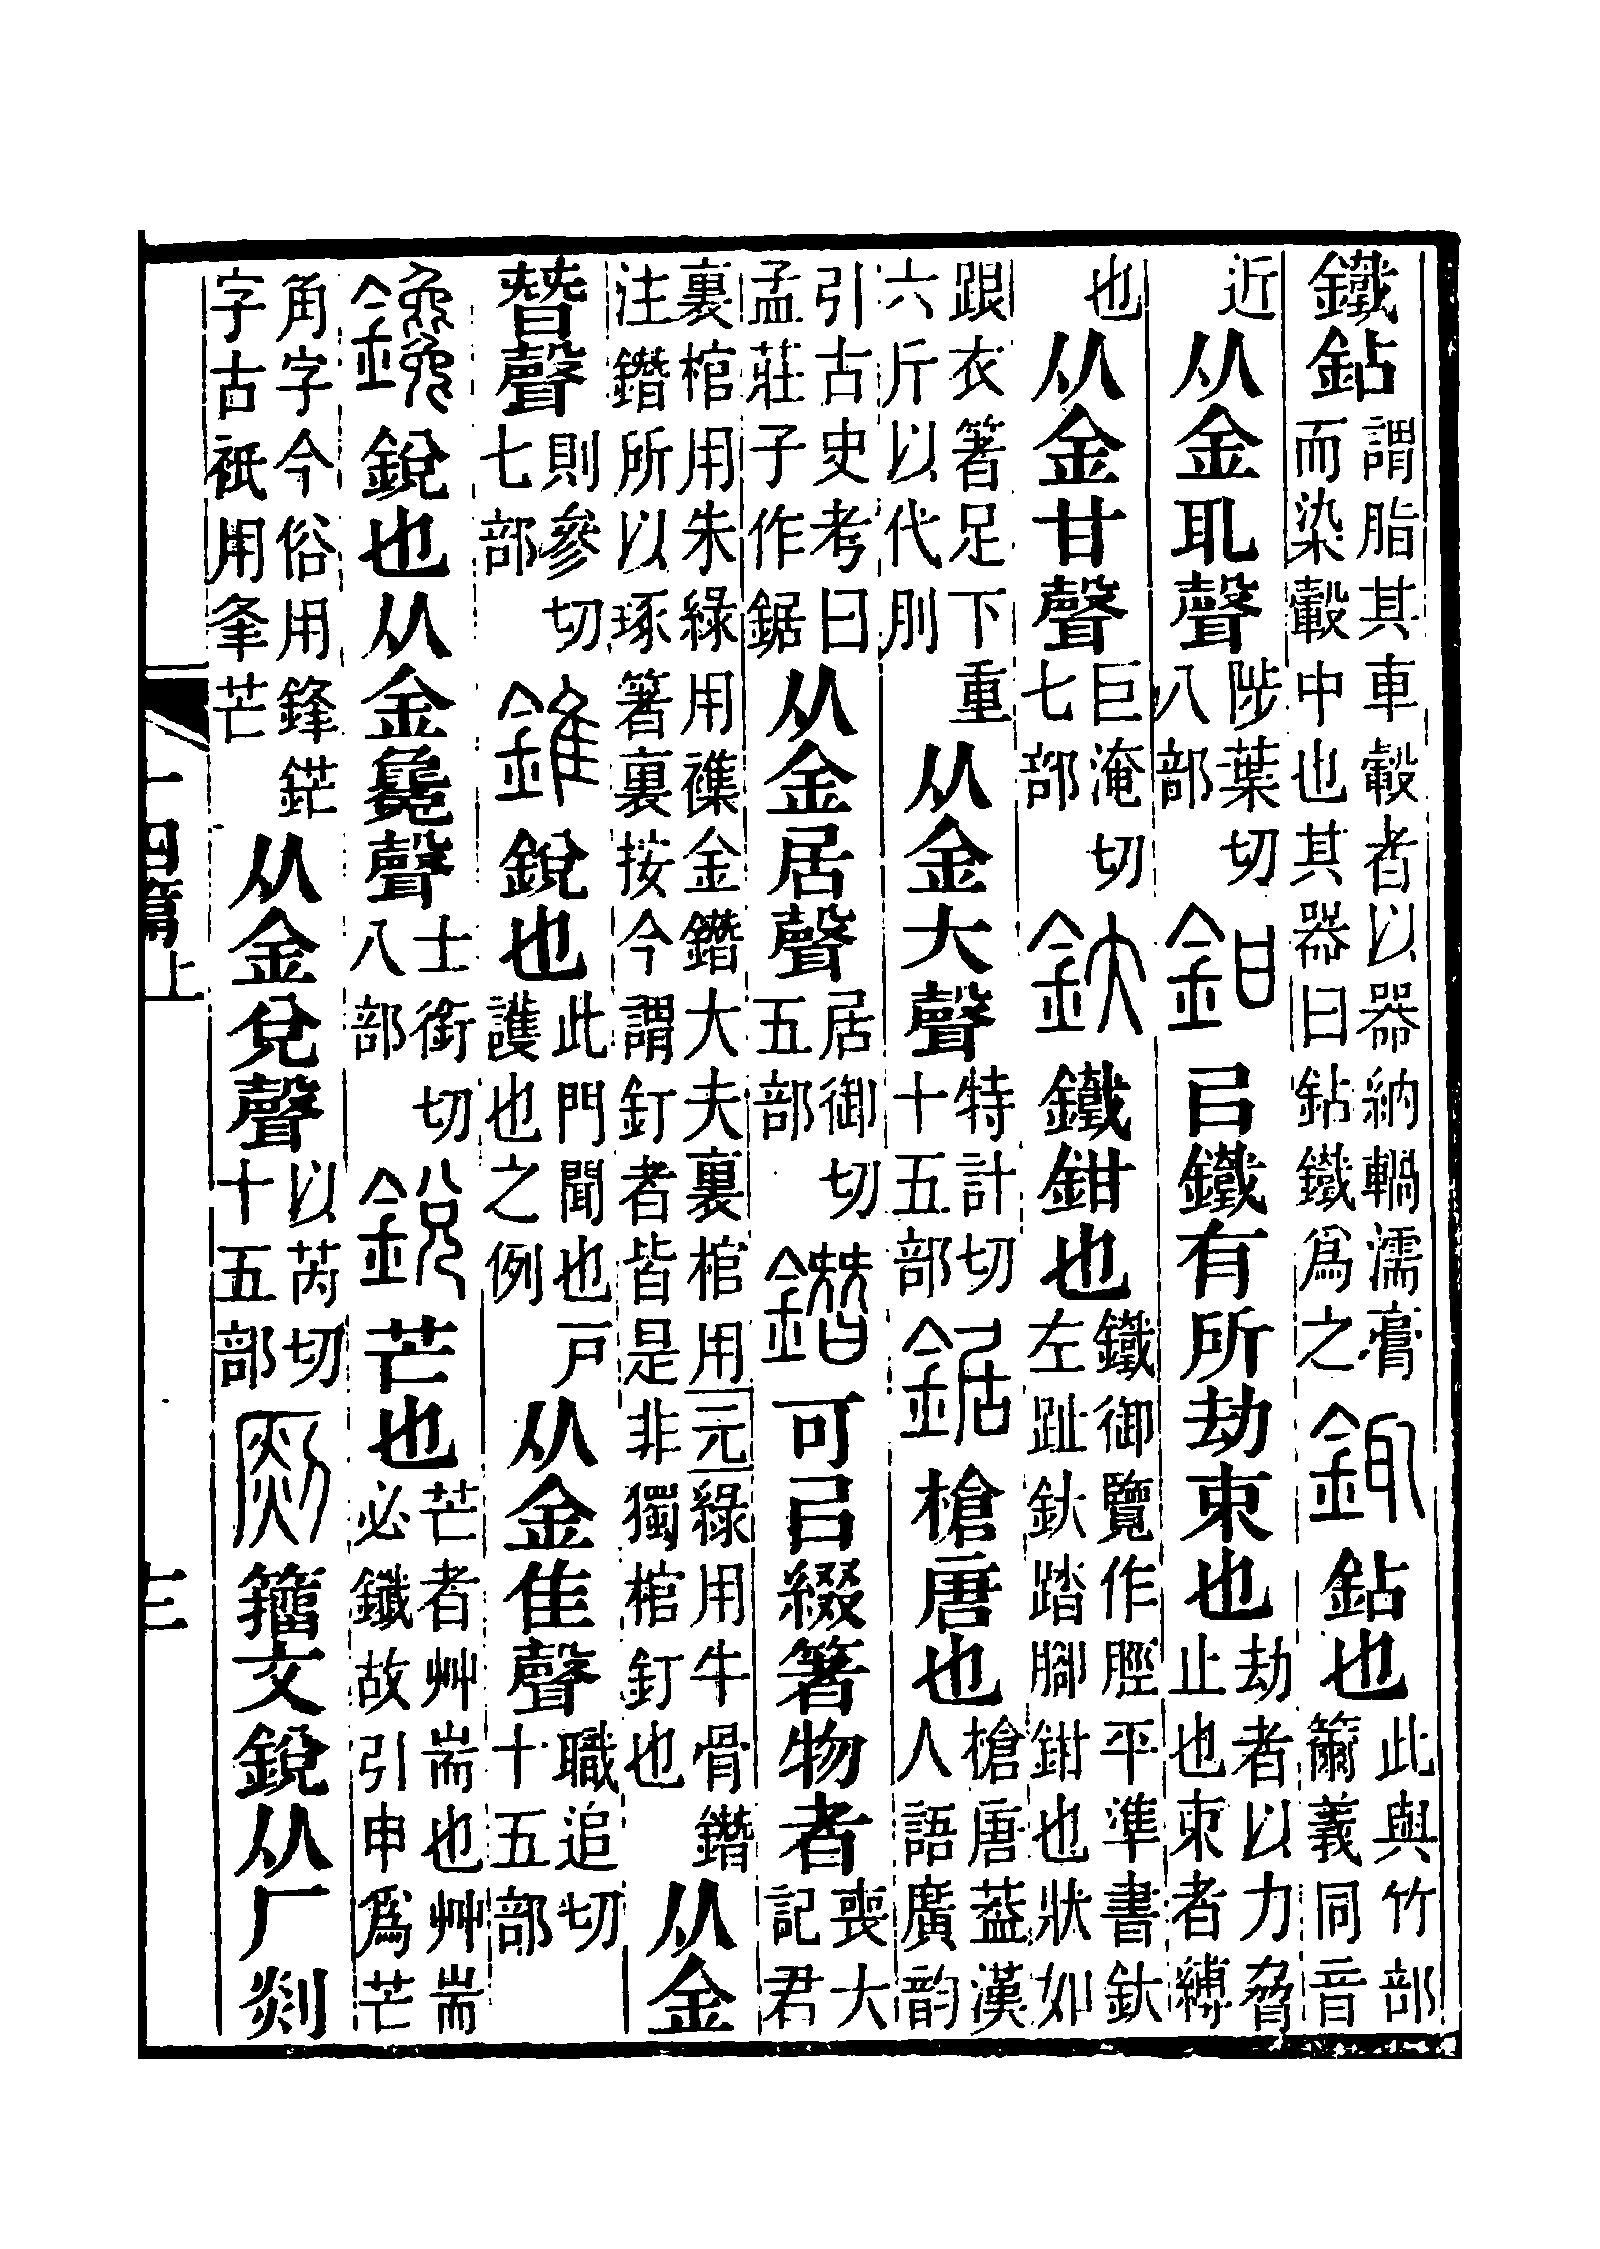 鐵鉆謂脂其車轂者以器納輠濡膏而染轂中也其器曰鉆鐵爲之銸鉆也此與竹部籋義同音
近从金耴聲陟葉切八部鉗㠯鐵有所劫束也劫者以力脅止也束者縛
也从金甘聲巨淹切七部釱鐵鉗也鐵御覽作脛平準書釱左趾釱踏腳鉗也狀如
跟衣箸足下重六斤以代刖从金大聲特計切十五部鋸槍唐也槍唐葢漢人語廣韵
引古史考曰孟莊子作鋸从金居聲居御切五部鐕可㠯綴箸物者喪大記君
裏棺用朱綠用襍金鐕大夫裏棺用元綠用牛骨鐕注鐕所以琢箸裏按今謂釘者皆是非獨棺釘也从金
朁聲則參切七部錐銳也此門聞也戸護也之例从金隹聲職追切十五部
鑱銳也从金毚聲士銜切八部銳芒也芒者艸耑也艸耑必鑯故引申爲芒
角字今俗用鋒鋩字古衹用夆芒从金兌聲以芮切十五部㓹籒文銳从厂剡
十四篇上
十三